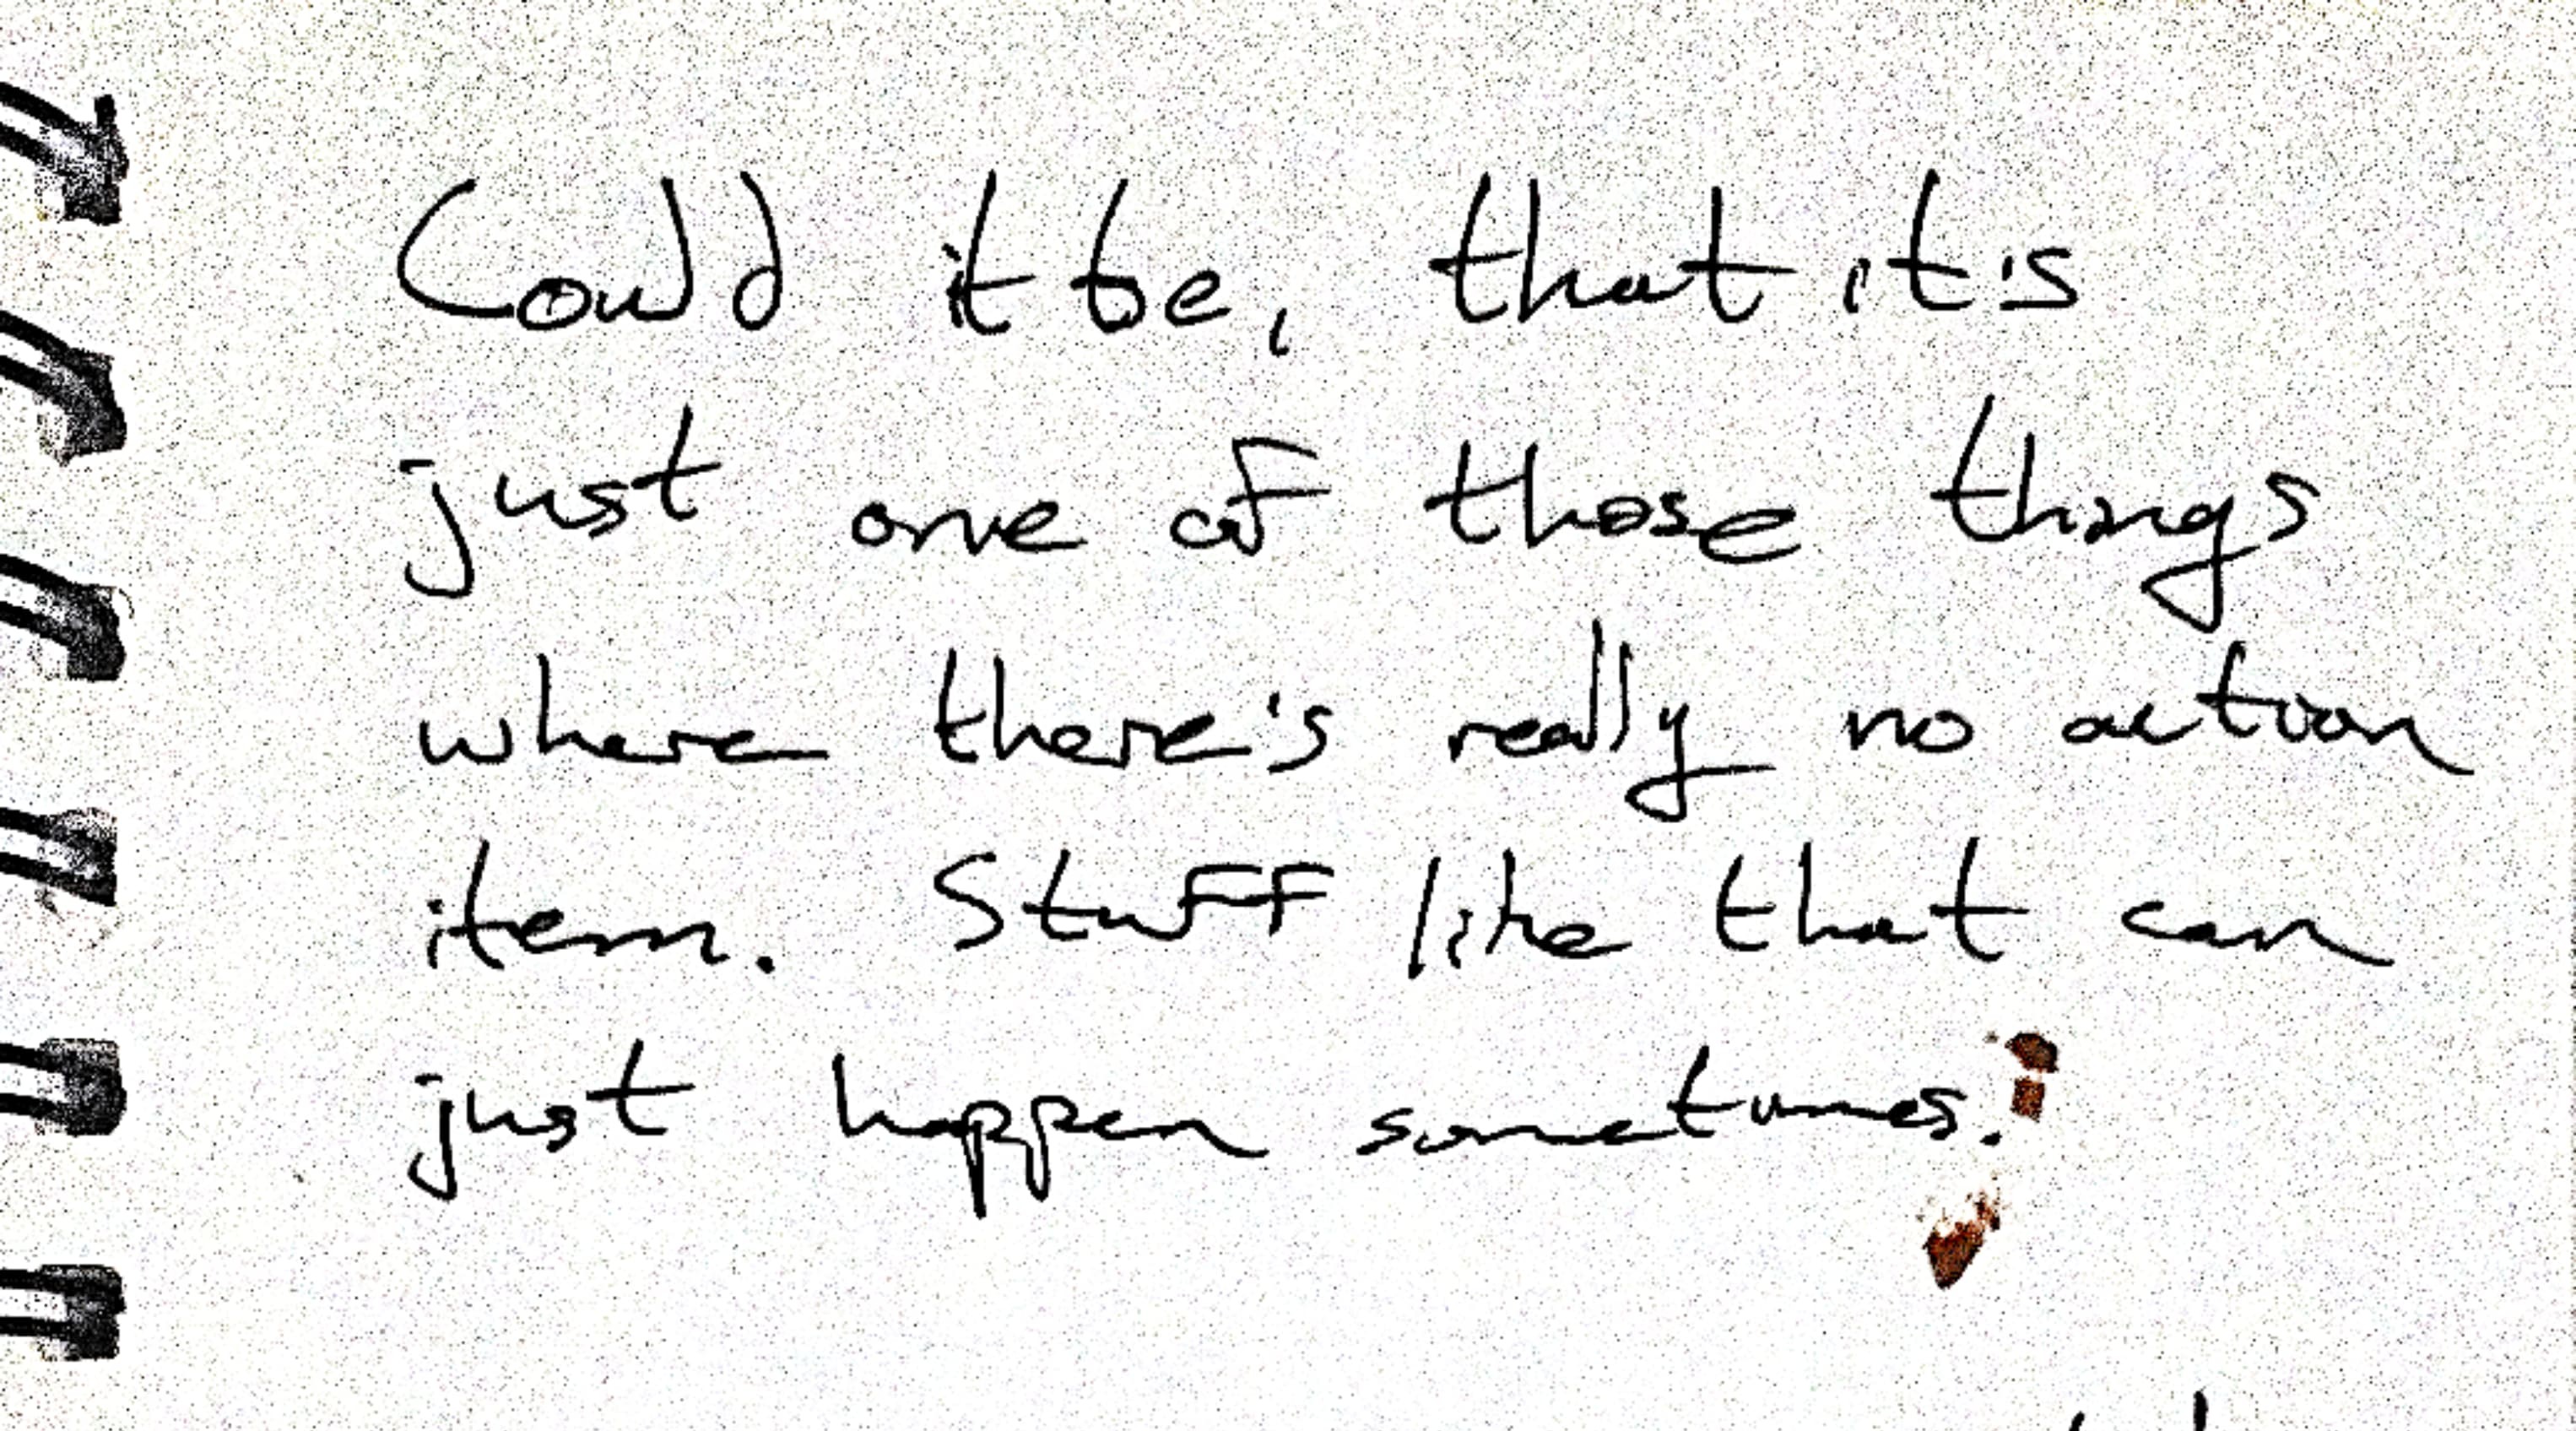 Could it be, that it's
just one of those things
where there's really no action
item. Stuff like that can
just happen sometimes.